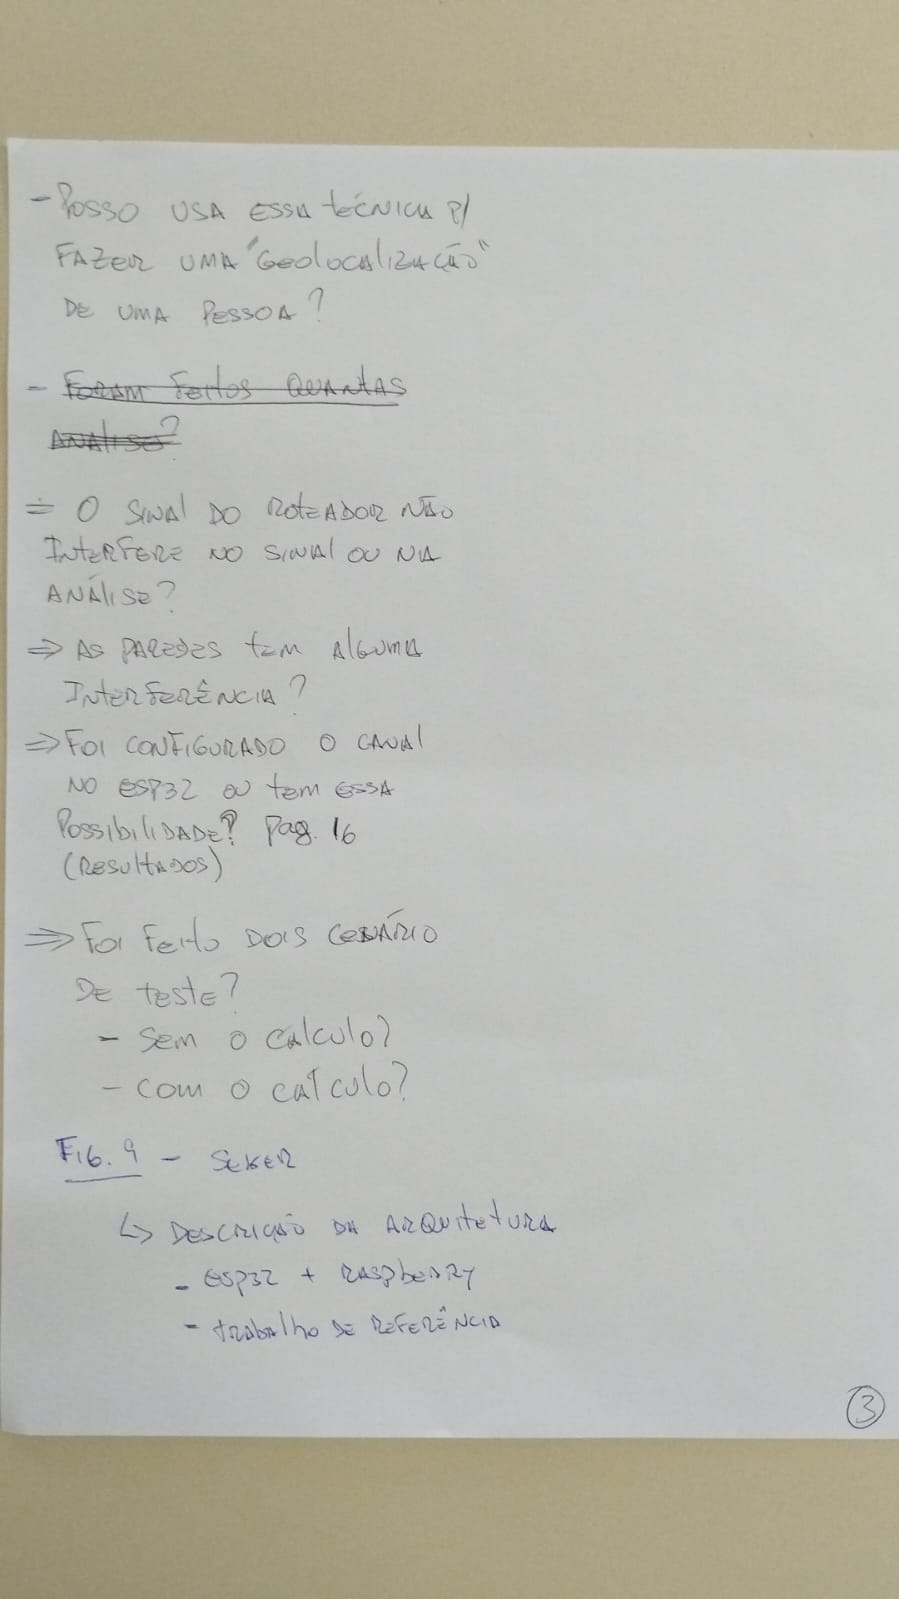 - Posso usa essa técnica p/
fazer uma "geolocalização"
de uma pessoa?
- Foram feitos quantas
análise?
= O sinal do roteador não
interfere no sinal ou na
análise?
⇒ As paredes tem alguma
interferência?
⇒ Foi configurado o canal
no ESP32 ou tem essa
possibilidade? Pag. 16
(Resultados)
⇒ Foi feito dois cenário
de teste?
- Sem o calculo?
- Com o calculo?
Fig. 9 -
↳ Descrição da arquitetura
- ESP32 + Raspberry
- trabalho de referência
3